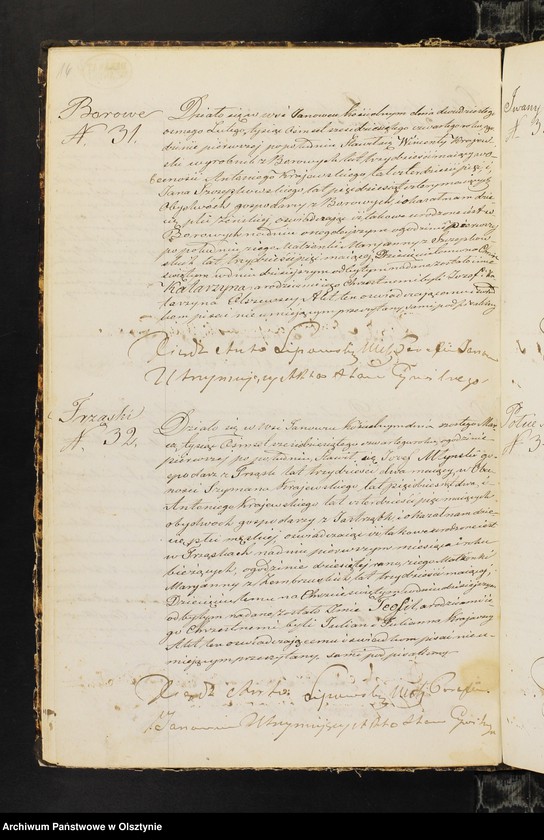 16
Borowe
N. 31.
Działo się w wsi Janowcu Kościelnym dnia dwudziestego
ósmego Lutego, tysiąc ośmset sześdziesiątego czwartego roku, o go-
dzinie pierwszej po południu, Stawił się Wincenty Krajew-
ski z Borowych, lat trzydzieści mający w o-
becności Antoniego Krajewskiego lat czterdzieści pięć i
Jana Szczyplińskiego, lat pięćdziesiąt mających
obydwóch gospodarzy z Borowych, i okazał nam dzie-
cię płci żeńskiej, oświadczając iż takowe urodzone jest w
Borowych na dniu onegdajszym o godzinie pierwszej
po południu z jego Małżonki Maryanny z
lat trzydzieści pięć mającej. Dziecięciu temu na Chrzcie
świętym w dniu dzisiejszym odbytym nadane zostało imię
Katarzyna, a rodzicami jego Chrzestnemi byli Józef i Ka-
tarzyna. Akt ten oświadczającemu i świad-
kom pisać nie umiejącym przeczytany, sami podpisaliśmy
Xiądz Lipowski
Utrzymujący Akta Stanu Cywilnego
Trząski
N. 32.
Działo się w wsi Janowcu Kościelnym dnia szóstego Mar-
ca, tysiąc ośmset sześdziesiątego czwartego roku, o godzinie
pierwszej po południu, Stawił się Józef gos-
podarz z Trząsk lat trzydzieści dwa mający, w Obe-
cności Szymona Krajewskiego, lat pięćdziesiąt dwa, i
Antoniego Krajewskiego lat czterdzieści pięć mających
obydwóch gospodarzy z Jastrząbk i okazał nam dzie-
cię, płci męzkiej, oświadczając iż takowe urodzone jest
w Trząskach na dniu pierwszym miesiąca i roku
bieżących, o godzinie dziesiątej rano, z jego Małżonki
Maryanny z Zembrzuskich lat trzydzieści mającej.
Dziecięciu temu na Chrzcie świętym w dniu dzisiejszym
odbytym nadane zostało Imie Teofil a rodzicami je-
go Chrzestnemi byli Julian i Julianna
Akt ten oświadczającemu i świadkom pisać nie u-
miejącym, przeczytany, sami podpisaliśmy
Xiądz Lipowski
Janowiec Utrzymujący Akta Stanu Cywilnego
Iwany
N. 3
N. 3
Archiwum Państwowe w Olsztynie